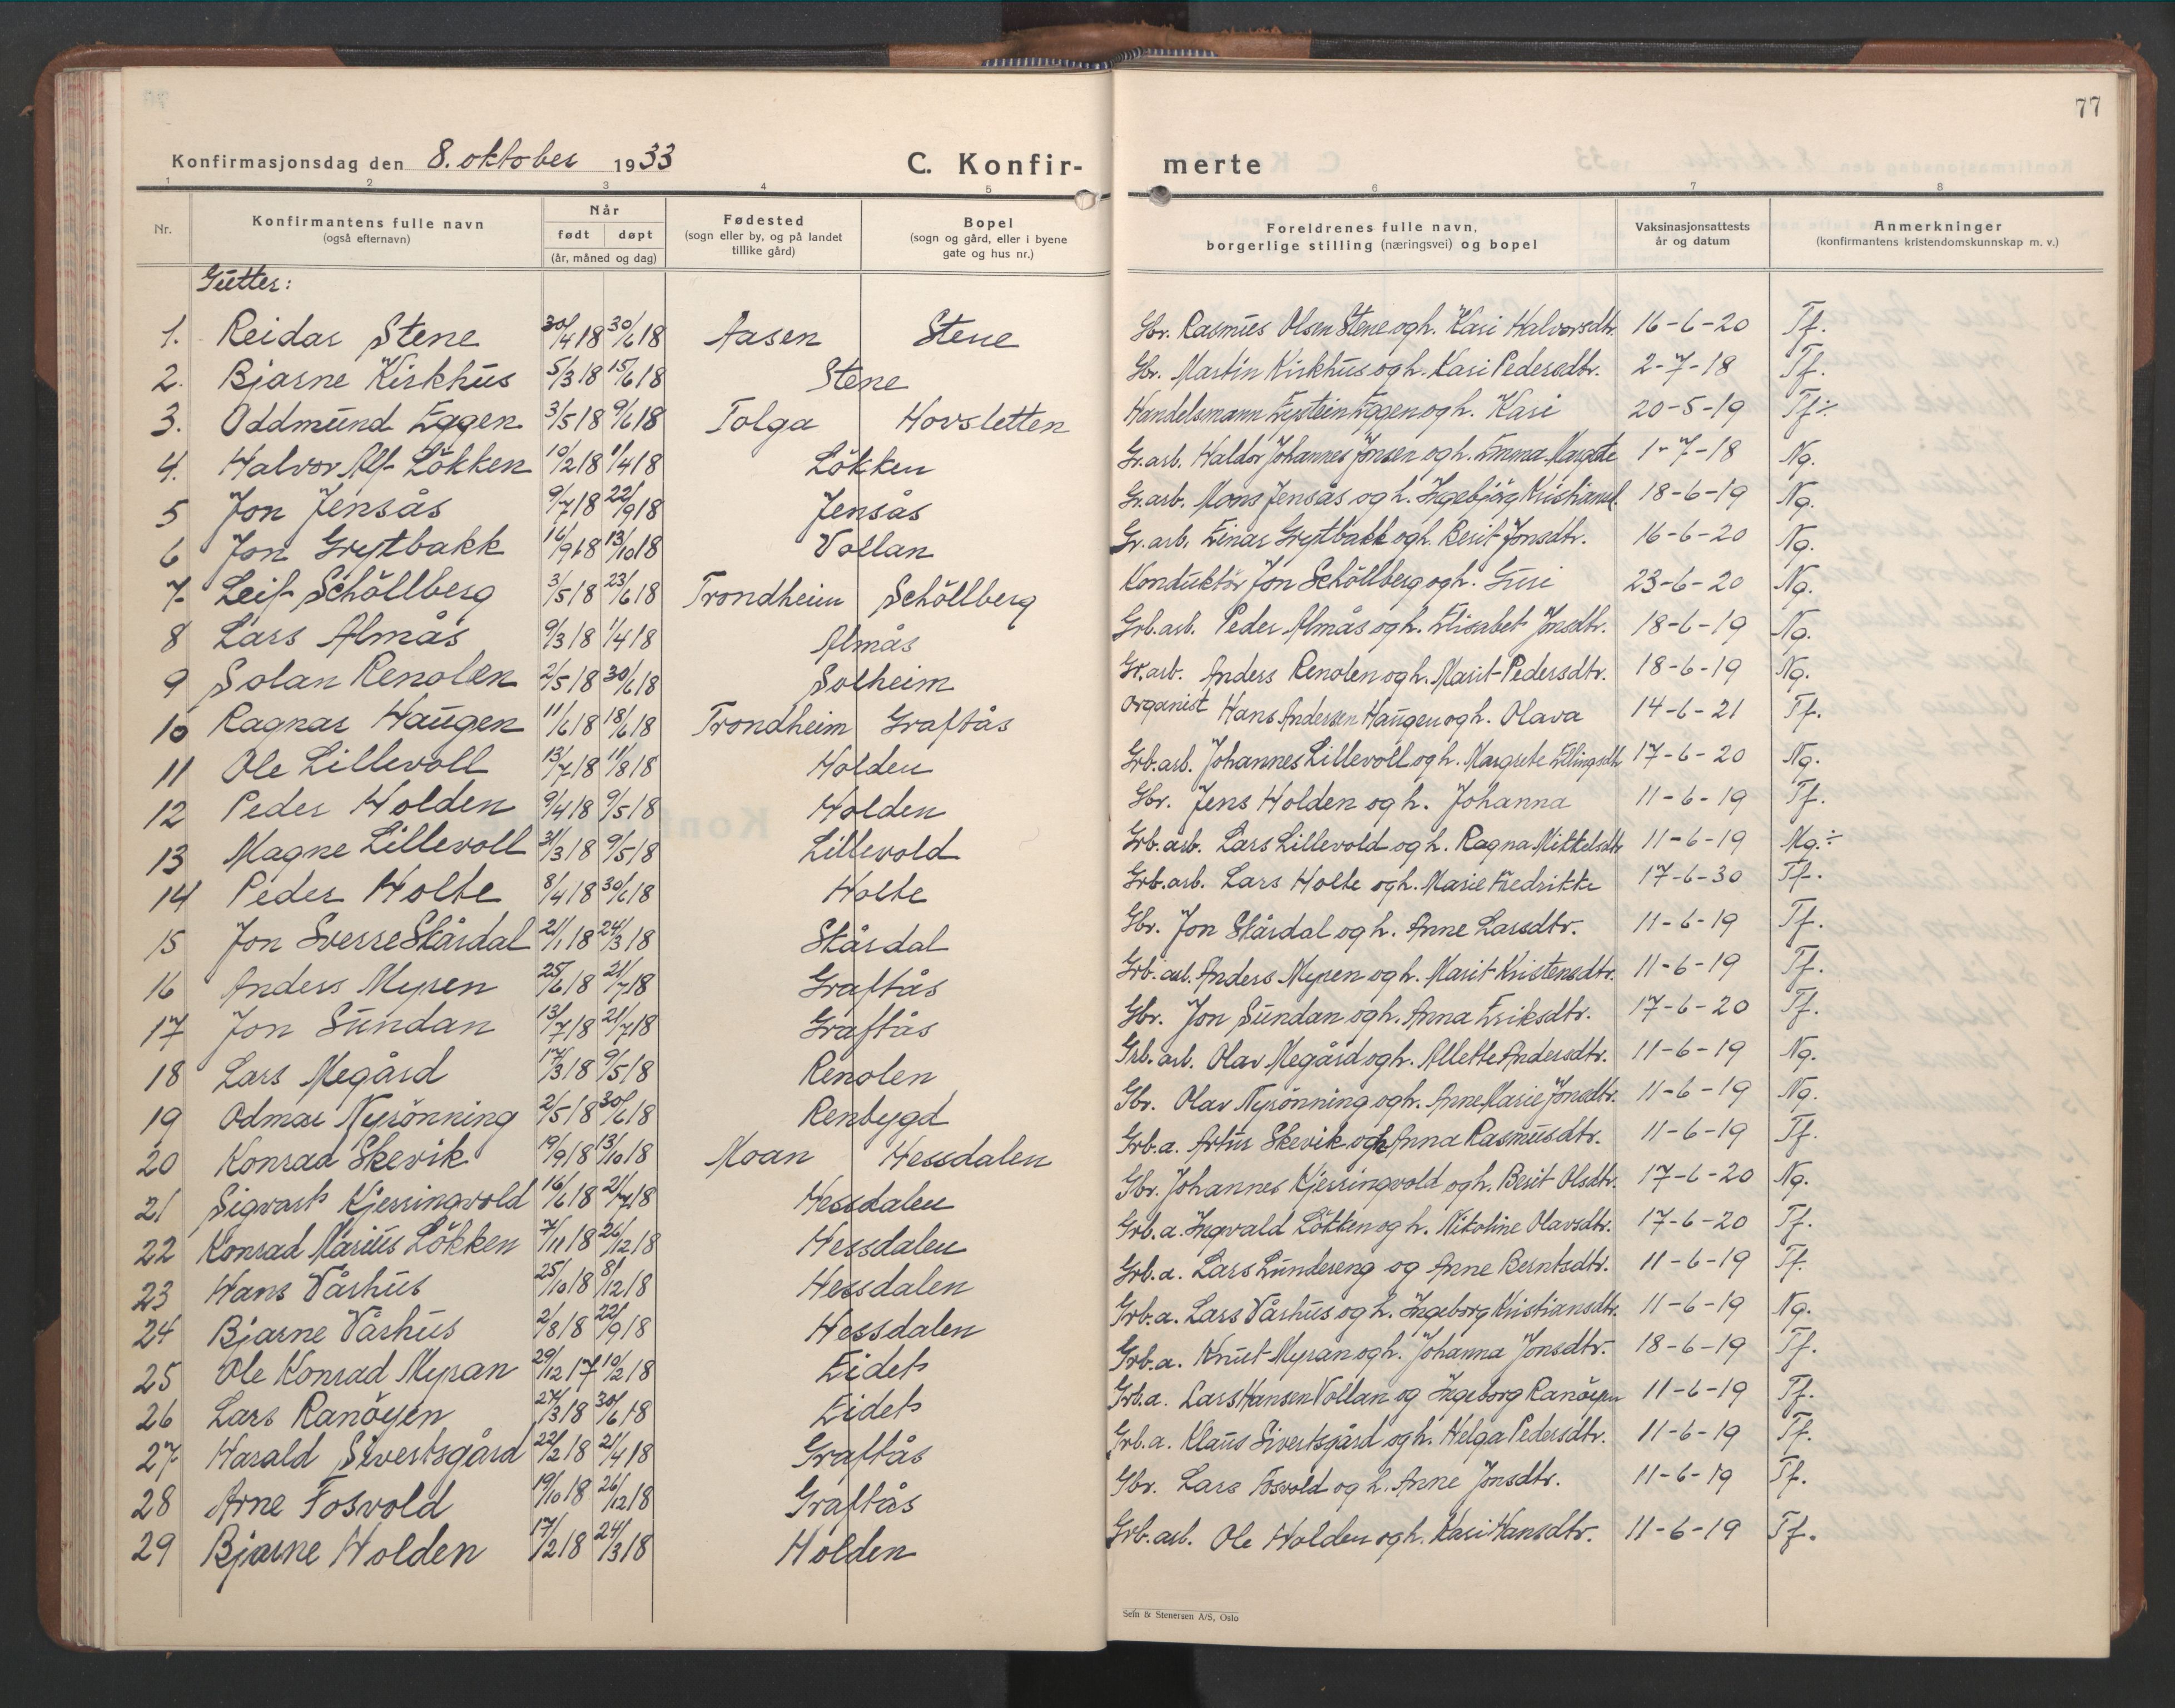 77
Konfirmasjonsdag den 8. oktober 1933 C. Konfir- merte
1 2 3 4 5 6 7 8
Nr. Konfirmantens fulle navn (også efternavn) Når født døpt (år, måned og dag) Fødested (sogn eller by, og på landet tillike gård) Bopel (sogn og gård, eller i byene gate og hus nr.) Foreldrenes fulle navn, borgerlige stilling (næringsvei) og bopel Vaksinasjonsattests år og datum Anmerkninger (konfirmantens kristendomskunnskap m. v.)
Gutter:
1. Reidar Stene 30/4 18 30/6 18 Aasen Stene Gbr. Rasmus Olsen Stene og h. Kari Halvorsdtr. 16-6-20 Tf.
2. Bjarne Kirkhus 5/3 18 15/6 18 Stene Gbr. Martin Kirkhus og h. Kari Pedersdtr. 2-7-18 Tf.
3. Oddmund Eggen 3/5 18 9/6 18 Tolga Hovsletten Handelsmann Eystein Eggen og h. Kari 20-5-19 Tf÷
4. Halvor Alf Lökken 10/2 18 1/4 18 Lökken Gr.arb. Haldor Johannes Jonsen og h. Emma Margrete 1-7-18 Ng.
5 Jon Jensås 9/7 18 22/9 18 Jensås Gr.arb. Mons Jensås og h. Ingebjörg Kristiansd. 18-6-19 Ng.
6 Jon Grytbakk 16/9 18 13/10 18 Vollan Gr.arb. Einar Grytbakk og h. Berit Jonsdtr. 16-6-20 Ng.
7 Leif Schöllberg 3/5 18 23/6 18 Trondheim Schöllberg Konduktör Jon Schöllberg og h. Guri 23-6-20 Ng.
8 Lars Almås 9/3 18 1/4 18 Almås Grb.arb. Peder Almås og h. Elisabet Jonsdtr. 18-6-19 Ng.
9 Solan Renolen 2/5 18 30/6 18 Solheim Gr.arb. Anders Renolen og h. Marit Pedersdtr. 18-6-19 Ng.
10 Ragnar Haugen 11/6 18 18/6 18 Trondheim Graftås Organist Hans Andersen Haugen og h. Olava 14-6-21 Tf.
11 Ole Lillevoll 13/7 18 11/8 18 Holden Grb.arb. Johannes Lillevoll og h. Margrete Ellingsdtr 17-6-20 Ng.
12 Peder Holden 9/4 18 9/5 18 Holden Gbr. Jens Holden og h. Johanna 11-6-19 Tf.
13 Magne Lillevoll 31/3 18 9/5 18 Lillevold Grb.arb. Lars Lillevold og h. Ragna Mikkelsdtr 11-6-19 Mg.÷
14 Peder Holte 8/4 18 30/6 18 Holte Grb.arb. Lars Holte og h. Marie Fredrikke 17-6-30 Tf.
15 Jon Sverre Skårdal 21/1 18 24/3 18 Skårdal Gbr. Jon Skårdal og h. Anne Larsdtr. 11-6-19 Tf.
16 Anders Myren 25/6 18 21/7 18 Graftås Grb.arb. Anders Myren og h. Marit Kristensdtr. 11-6-19 Tf.
17 Jon Sundan 13/7 18 21/7 18 Graftås Gbr. Jon Sundan og h. Anna Eriksdtr. 17-6-20 Tf.
18 Lars Megård 17/3 18 9/5 18 Renolen Grb.arb. Olav Megård og h. Allette Andersdtr. 11-6-19 Ng.
19 Odmar Nyrönning 2/5 18 30/6 18 Renbygd Gbr. Olav Nyrönning og h. Anne Marie Jonsdtr. 11-6-19 Ng.
20 Konrad Skevik 19/9 18 13/10 18 Moan Hessdalen Grb.a. Artur Skevik og h Anna Rasmusdtr. 11-6-19 Tf.
21 Sigvart Kjerringvold 16/6 18 21/7 18 Hessdalen Gbr. Johannes Kjerringvold og h. Berit Olsdtr. 17-6-20 Ng.
22 Konrad Marius Lökken 7/11 18 26/12 18 Hessdalen Grb.a. Ingvald Lökken og h. Nikoline Olavsdtr. 17-6-20 Tf.
23 Hans Vårhus 25/10 18 8/12 18 Hessdalen Grb.a. Lars Lundereng og Anne Berntsdtr. 11-6-19 Tf.
24 Bjarne Vårhus 2/8 18 22/9 18 Hessdalen Grb.a. Lars Vårhus og h. Ingeborg Kristiansdtr. 11-6-19 Ng.
25 Ole Konrad Myran 29/12 17 10/2 18 Eidet Grb.a. Knut Myran og h. Johanna Jonsdtr. 18-6-19 Tf.
26 Lars Ranöyen 27/3 18 30/6 18 Eidet Grb.a. Lars Hansen Vollan og Ingeborg Ranöyen 11-6-19 Tf.
27 Harald Sivertsgård 22/2 18 21/4 18 Graftås Grb.a. Klaus Sivertsgård og h. Helga Pedersdtr. 11-6-19 Tf.
28 Arne Fosvold 19/10 18 26/12 18 Graftås Gbr. Lars Fosvold og h. Anne Jonsdtr. 11-6-19 Tf.
29 Bjarne Holden 17/2 18 24/3 18 Holden Grb.arb. Ole Holden og h. Kari Hansdtr. 11-6-19 Tf.
Sem & Stenersen A/S, Oslo